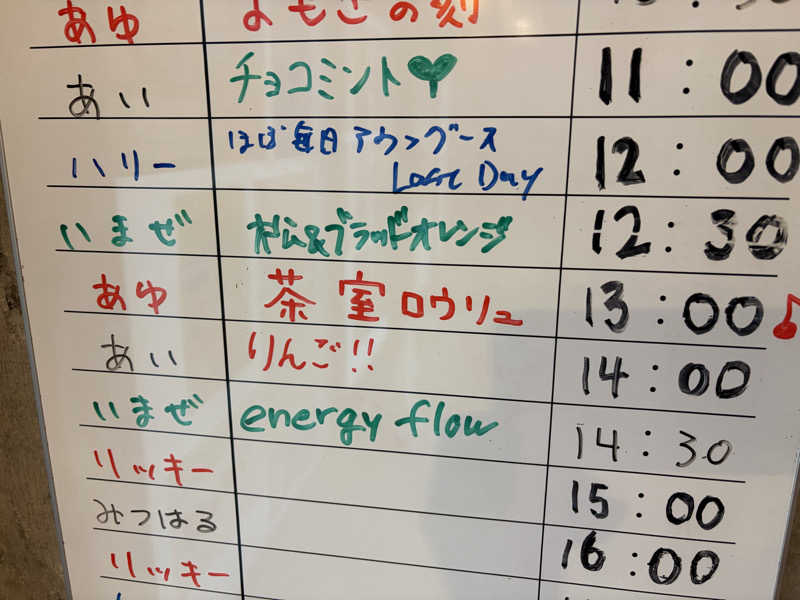 あゆ よもぎの刻
あい チョコミント 11:00
ハリー ほぼ毎日アウフグース 12:00
Last Day
いまぜ 松&ブラッドオレンジ 12:30
あゆ 茶室ロウリュ 13:00♪
あい りんご!! 14:00
いまぜ energy flow 14:30
リッキー 15:00
みつはる 16:00
リッキー